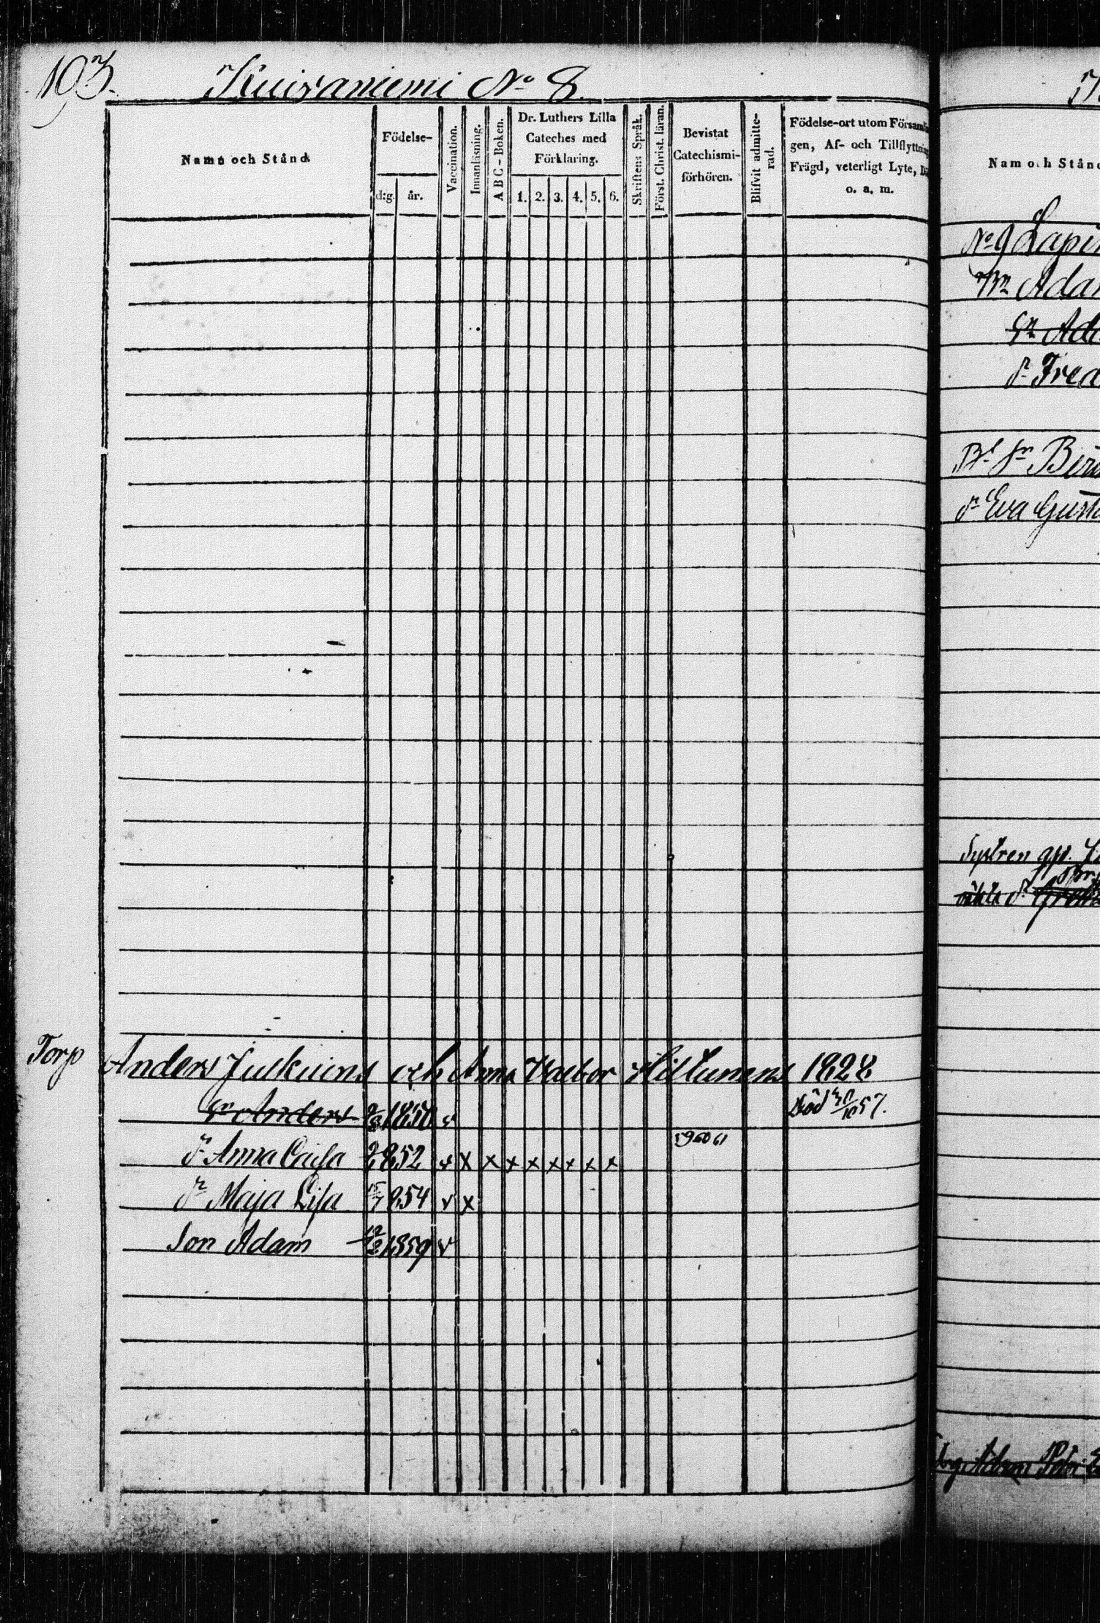 193.
Kuivaniemi No 8.
Namn och Stånd
Födelse-
d:g.
år.
Vaccination.
Innanläsning.
A B C - Boken.
Dr. Luthers Lilla
Cateches med
Förklaring.
1. 2. 3. 4. 5. 6.
Skriftens Språk.
Först. Christ. läran.
Bevistat
Catechismi-
förhören.
Blifvit admitte-
rad.
Födelse-ort utom Försam
gen, Af- och Tillflyttning
Frägd, veterligt Lyte,
o. a. m.
Torp Anders och Anna 1828
Sn Anders 1850 v Död 57.
dr Anna Caisa 852 x x x x x x x x x 59 60 61
dr Maja Lisa 854 v x
Son Adam 1859 v
Nam och Stånd
No 9 Lapin
Adam
Sn
dr Fred
dr Eva Gust